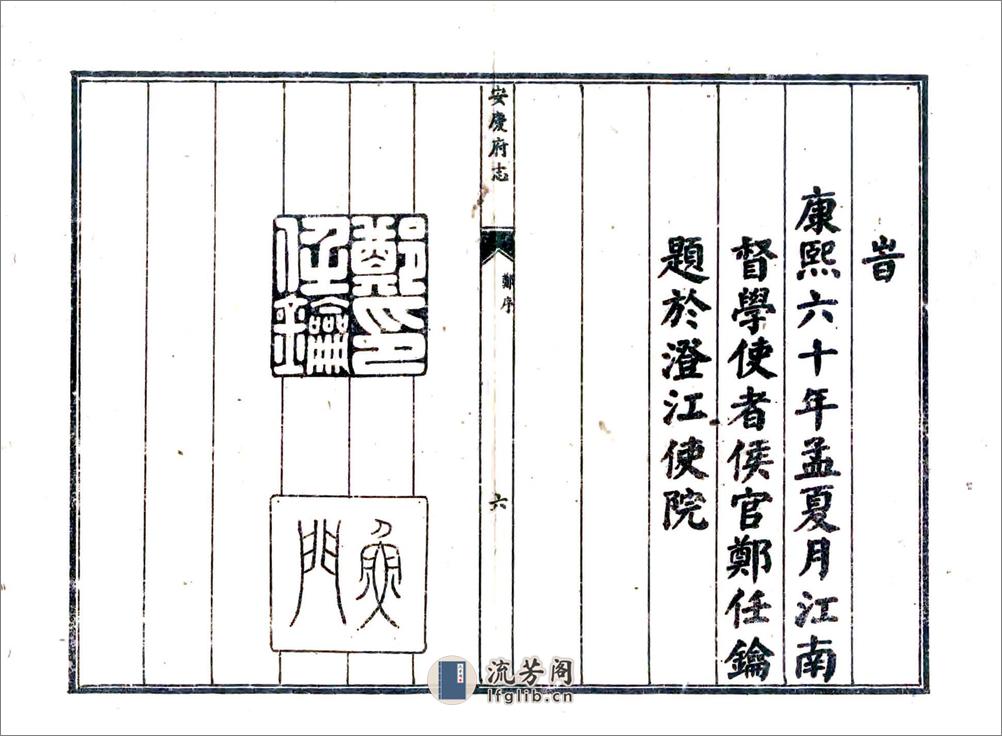 旹
康熙六十年孟夏月江南
督學使者侯官鄭任鑰
題於澄江使院
安慶府志
鄭序
六
鄭印
任鑰
魚門
流芳阁
lfglib.cn